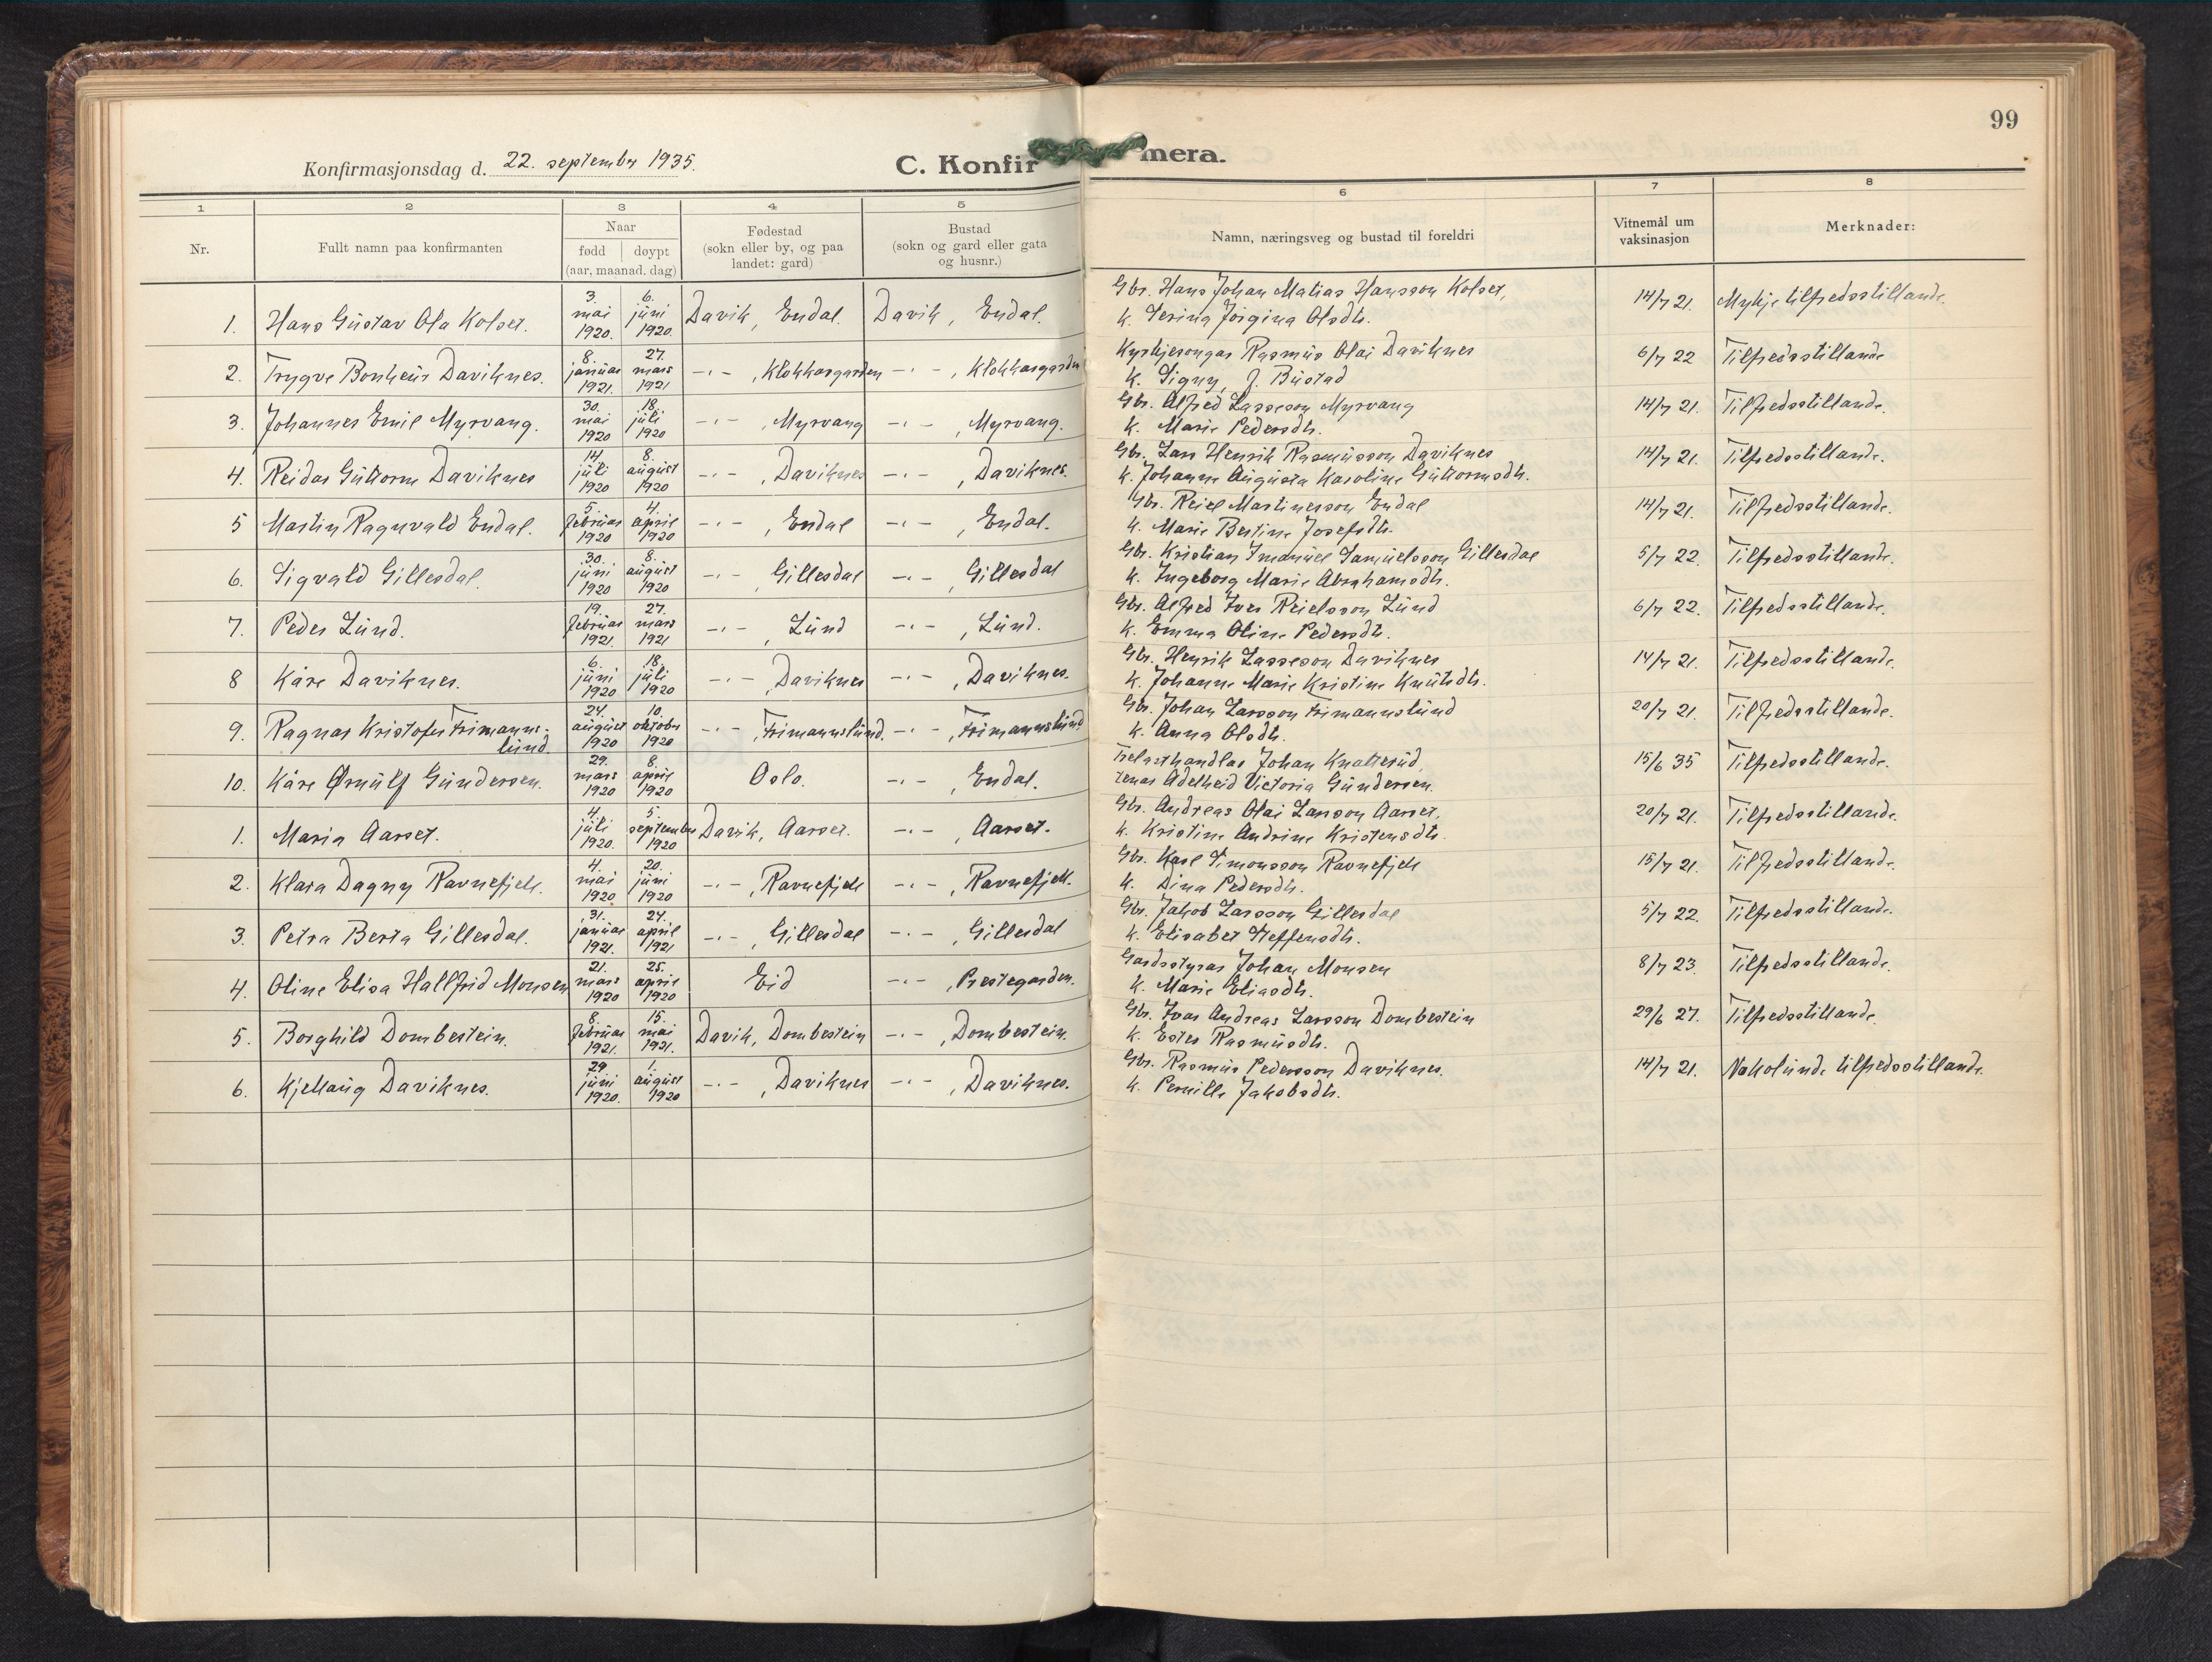 99
Konfirmasjonsdag d. 22. september 1935.
C. Konfir mera.
1 2 3 4 5 6 7 8
Nr.
Fullt namn paa konfirmanten
Naar
fødd døypt
(aar, maanad, dag)
Fødestad
(sokn eller by, og paa
landet: gard)
Bustad
(sokn og gard eller gata
og husnr.)
Namn, næringsveg og bustad til foreldri
Vitnemål um
vaksinasjon
Merknader:
1. Hans Gustav Ola Kolset. 3. mai 1920. 6. juni 1920. Davik, Endal. Davik, Endal. Gbr. Hans Johan Matias Hansson Kolset, 14/7 21. Mykje tilfredsstillande.
k. Serina Jorgina Olsdtr.
2. Trygve Bonheur Daviknes. 8. januar 1921. 27. mars 1921 -"- , Klokkargarden -"- , Klokkargarden Kyrkjesongar Rasmus Olai Daviknes 6/7 22 Tilfredsstillande
k. Signy, f. Bustad
3. Johannes Emil Myrvang. 30. mai 1920 18. juli 1920 -"- , Myrvang -"- , Myrvang. Gbr. Alfred Lasseson Myrvang 14/7 21. Tilfredsstillande.
k. Marie Pedersdtr.
4. Reidar Guttorm Daviknes 14. juli 1920 8. august 1920 -"- , Daviknes -"- , Daviknes. Gbr. Lars Henrik Rasmusson Daviknes 14/7 21. Tilfredsstillande.
k. Johanne Augusta Karoline Guttormsdtr.
5 Martin Ragnvald Endal. 5. februar 1920 4. april 1920 -"- , Endal -"- , Endal. Gbr. Reiel Martinusson Endal 14/7 21. Tilfredsstillande.
k. Marie Bertine Josefsdtr.
6. Sigvald Gillesdal. 30. juni 1920 8. august 1920 -"- , Gillesdal -"- , Gillesdal Gbr. Kristian Imanuel Samuelsson Gillesdal 5/7 22. Tilfredsstillande.
k. Ingeborg Marie Abrahamsdtr.
7. Peder Lund. 19. februar 1921. 27. mars 1921 -"- , Lund -"- , Lund. Gbr. Alfred Iver Reielsson Lund 6/7 22. Tilfredsstillande.
k. Emma Oline Pedersdtr.
8 Kåre Daviknes. 6. juni 1920 18. juli 1920 -"- , Daviknes -"- , Daviknes. Gbr. Henrik Lasseson Daviknes 14/7 21. Tilfredsstillande.
k. Johanne Marie Kristine Knutsdtr.
9. Ragnar Kristofer Frimanns- 24. august 1920 10. oktober 1920 -"- , Frimannslund. -"- , Frimannslund Gbr. Johan Larsson Frimannslund 20/7 21. Tilfredsstillande.
lund. k. Anna Olsdtr.
10. Kåre Ørnulf Gundersen. 29. mars 1920 8. april 1920 Oslo. -"- , Endal. Trelasthandlar Johan Knatterud, 15/6 35 Tilfredsstillande.
tenar Adelheid Victoria Gundersen.
1. Maria Aarset. 4. juli 1920. 5. september 1920 Davik, Aarset. -"- , Aarset. Gbr. Andreas Olai Larsson Aarset, 20/7 21. Tilfredsstillande.
k. Kristine Andrine Kristensdtr.
2. Klara Dagny Ravnefjell. 4. mai 1920 20. juni 1920 -"- , Ravnefjell -"- , Ravnefjell. Gbr. Karl Simonsson Ravnefjell 15/7 21. Tilfredsstillande.
k. Dina Pedersdtr.
3. Petra Berta Gillesdal. 31. januar 1921. 24. april 1921 -"- , Gillesdal -"- , Gillesdal Gbr. Jakob Larsson Gillesdal 5/7 22. Tilfredsstillande.
k. Elisabet Steffensdtr.
4. Oline Elisa Hallfrid Monsen 21. mars 1920 25. april 1920 Eid -"- , Prestegarden. Gardsstyrar Johan Monsen 8/7 23. Tilfredsstillande.
k. Marie Eliasdtr.
5. Borghild Dombestein. 8. februar 1921. 15. mai 1921. Davik, Dombestein -"- , Dombestein. Gbr. Ivar Andreas Larsson Dombestein 29/6 27. Tilfredsstillande.
k. Ester Rasmusdtr.
6. Kjellaug Daviknes. 29 juni 1920. 1. august 1920 -"- , Daviknes -"- , Daviknes. Gbr. Rasmus Pedersson Daviknes. 14/7 21. Nokolunde tilfredsstillande.
k. Pernille Jakobsdtr.